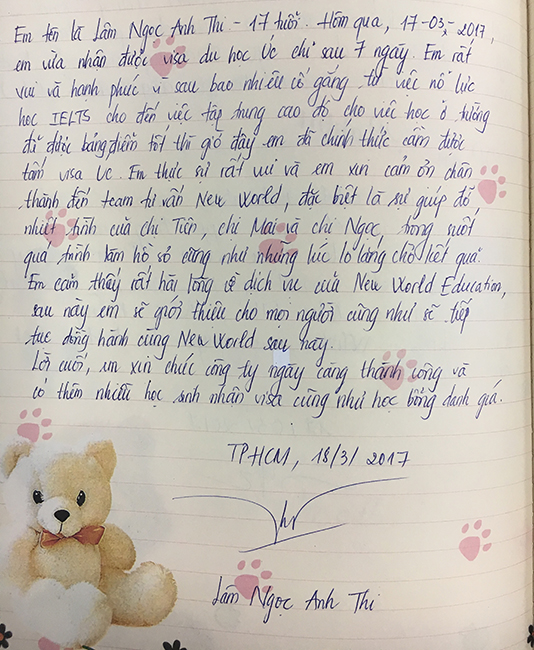 Em tên là Lâm Ngọc Anh Thi - 17 tuổi. Hôm qua, 17-03-2017,
em vừa nhận được visa du học Úc chỉ sau 7 ngày. Em rất
vui và hạnh phúc vì sau bao nhiêu cố gắng từ việc nỗ lực
học IELTS cho đến việc tập trung cao độ cho việc học ở trường
để được bảng điểm tốt thì giờ đây em đã chính thức cầm được
tấm visa Úc. Em thực sự rất vui và em xin cảm ơn chân
thành đến team tư vấn New World, đặc biệt là sự giúp đỡ
nhiệt tình của chị Tiên, chị Mai và chị Ngọc trong suốt
quá trình làm hồ sơ cũng như những lúc lo lắng chờ kết quả.
Em cảm thấy rất hài lòng về dịch vụ của New World Education,
sau này em sẽ giới thiệu cho mọi người cũng như sẽ tiếp
tục đồng hành cùng New World sau này.
Lời cuối, em xin chúc công ty ngày càng thành công và
có thêm nhiều học sinh nhận visa cũng như học bổng danh giá.
TPHCM, 18/3/2017
Lâm Ngọc Anh Thi